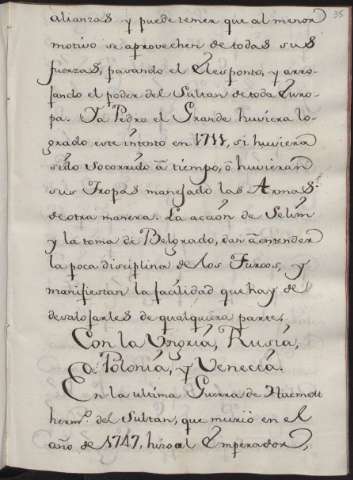 36
alianzas y puede temer que al menor
motivo se aprovechen de todas sus
fuerzas, pasando el Elesponto, y arro-
jando el poder del Sultan de toda Euro-
pa. Ya Pedro el Grande huviera lo-
grado este intento en 1711, si huviera
sido socorrido à tiempo, ò huvieran
sus Tropas manejado las Armas
de otra manera. La acción de Selim
y la toma de Belgrado, dan à entender
la poca disciplina de los Turcos, y
manifiestan la facilidad que hay de
desalojarles de qualquiera parte.
Con la Ungria, Rusia,
Polonia, y Venecia.
En la ultima Guerra de
herm.º del Sultan, que murió en el
año de 1747, hizo al Emperador,